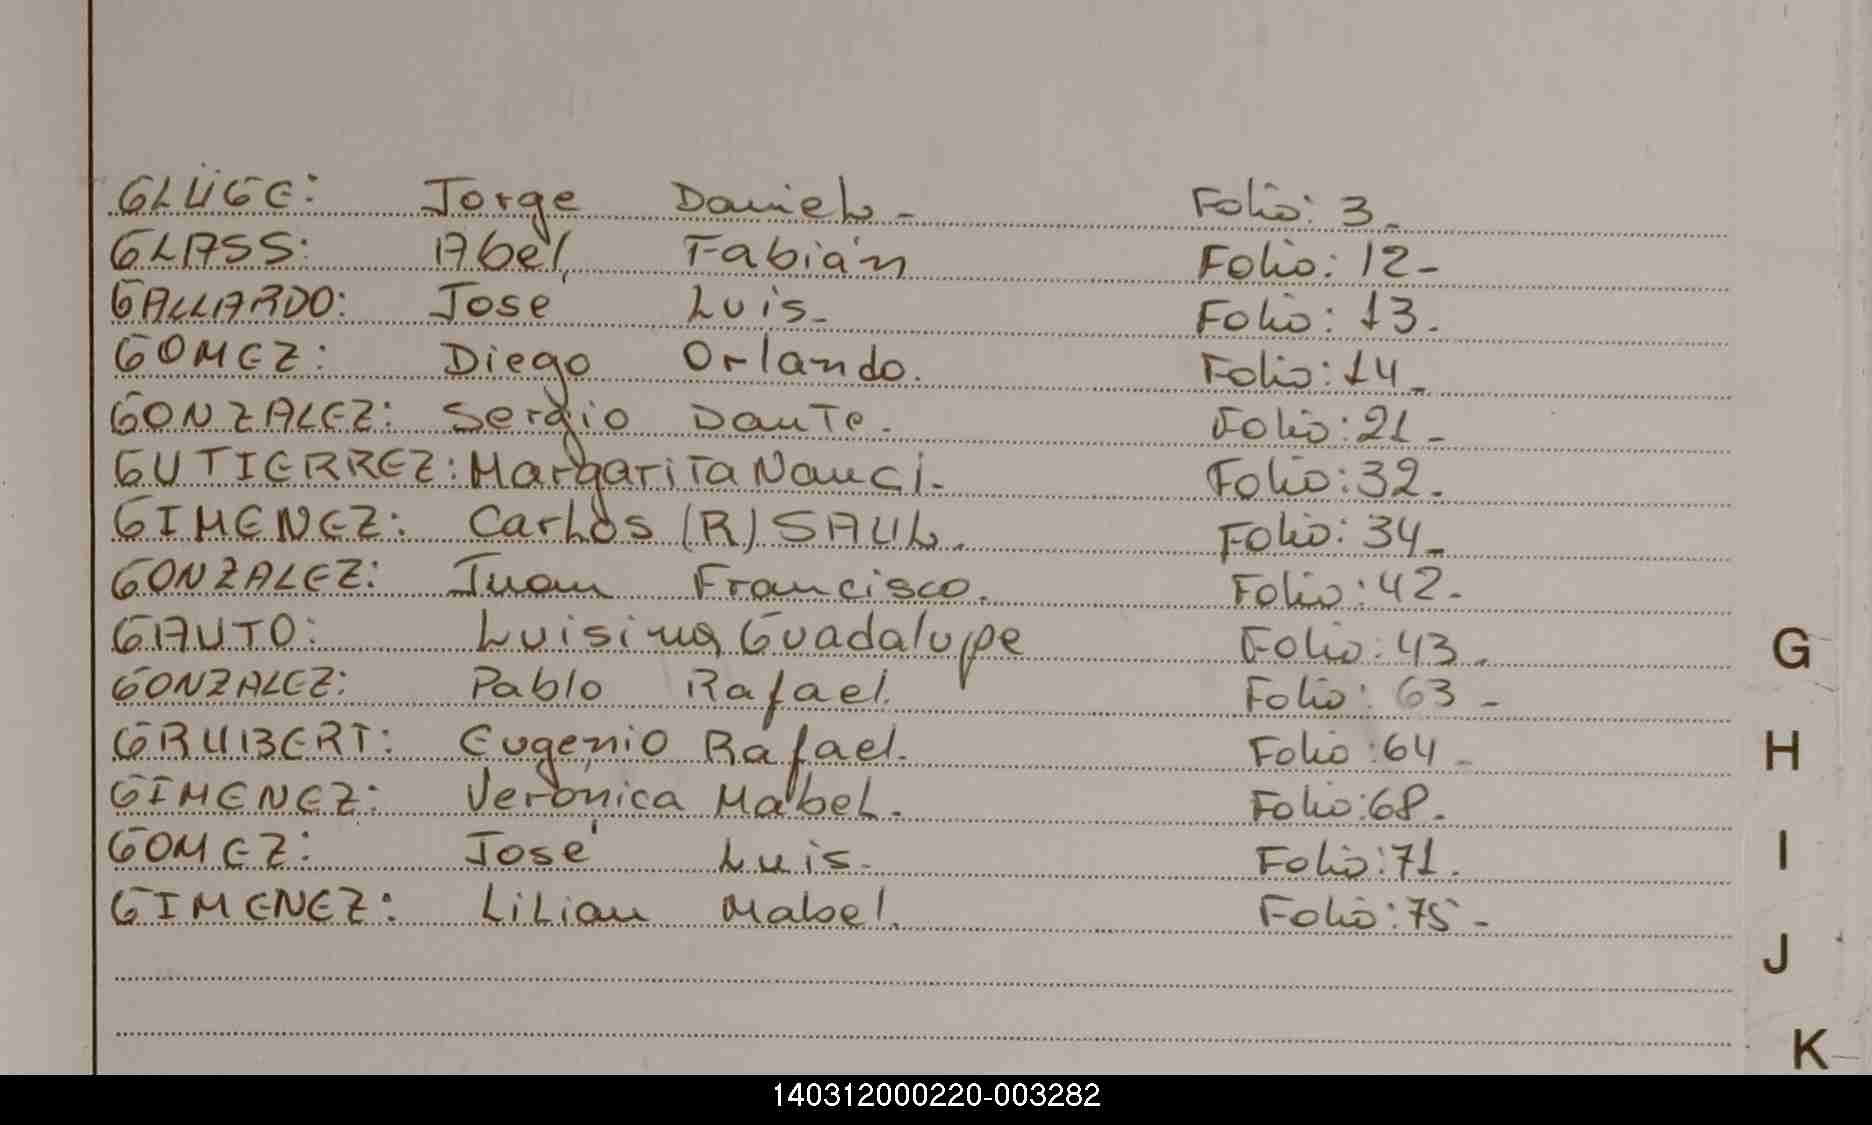 GLÜGE: Jorge Daniel- Folio: 3-
GLASS: Abel Fabián Folio: 12-
GALLARDO: José Luis- Folio: 13.
GOMEZ: Diego Orlando. Folio: 14-
GONZALEZ: Sergio Dante. Folio: 21-
GUTIERREZ: Margarita Nanci. Folio: 32.
GIMENEZ: Carlos (R) SAUL. Folio: 34-
GONZALEZ: Juan Francisco. Folio: 42-
GAUTO: Luisina Guadalupe Folio: 43.
GONZALEZ: Pablo Rafael. Folio: 63-
GRUBERT: Eugenio Rafael. Folio: 64-
GIMENEZ: Verónica Mabel. Folio: 68.
GOMEZ: José Luis. Folio: 71.
GIMENEZ: Lilian Mabel. Folio: 75-
G
H
I
J
K
140312000220-003282